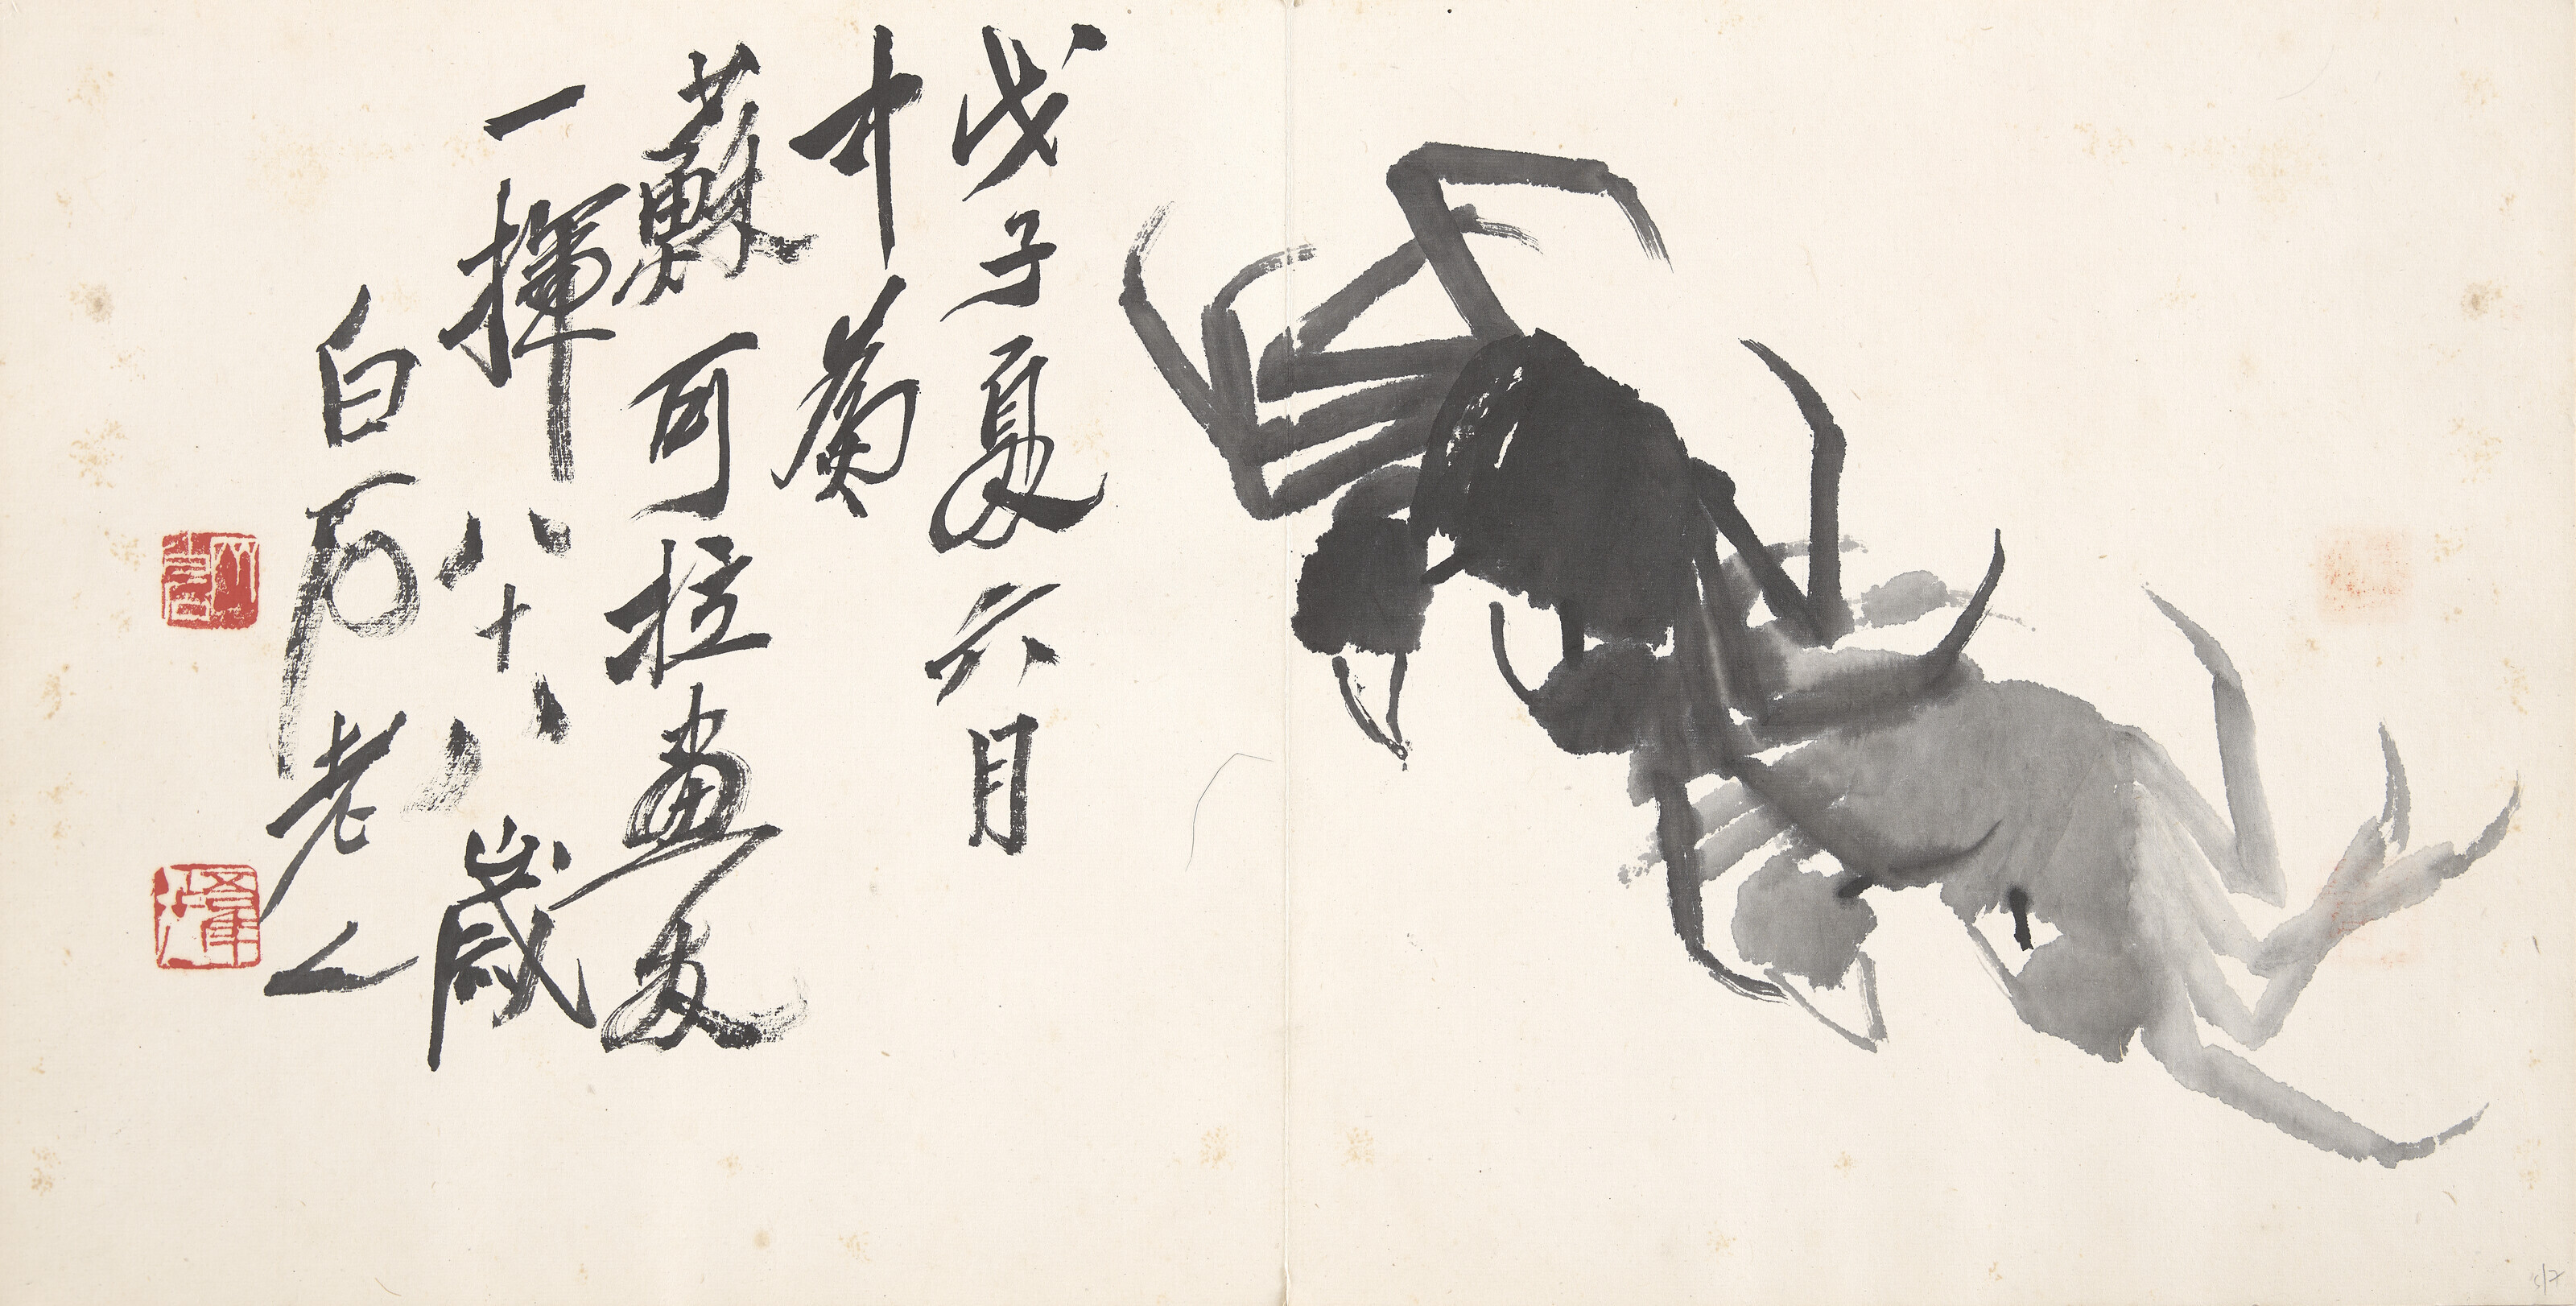 戊子夏六月
蘇可拉畫友
一揮八十八歲
白石老人